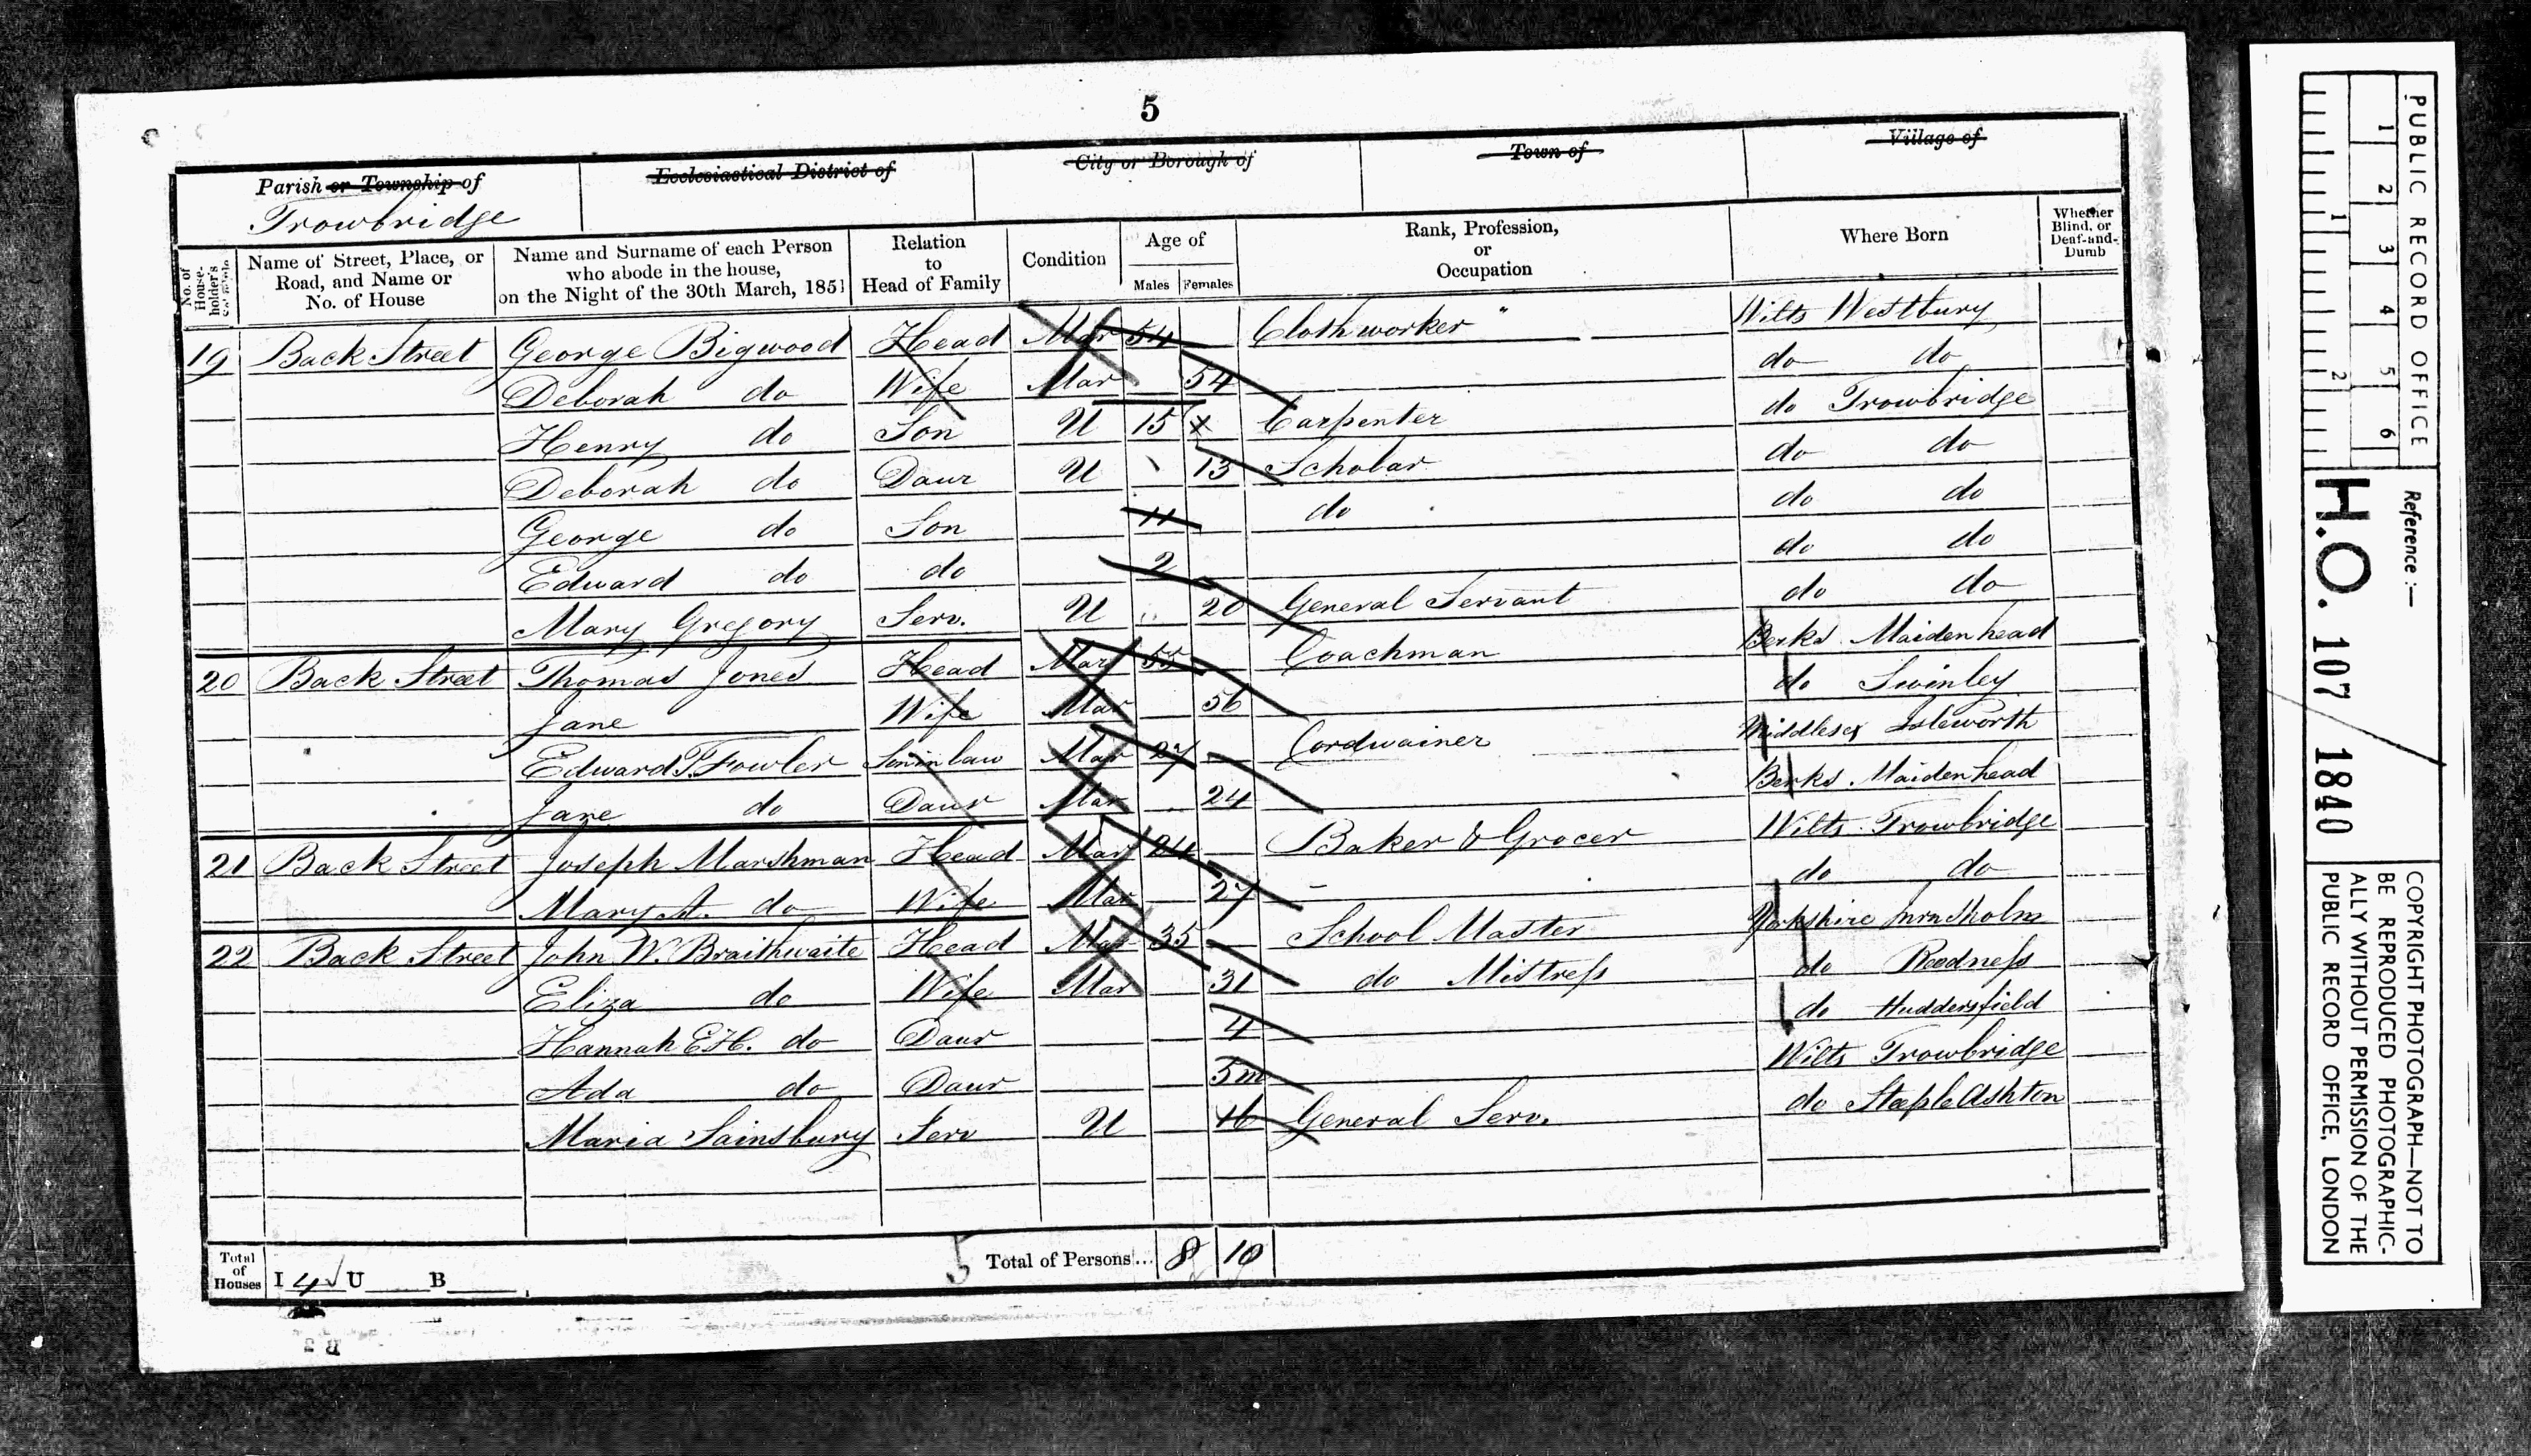 5
Parish or Township of
Trowbridge
Ecclesiastical District of
City or Borough of
Town of
Village of
No. of House-holder's
Name of Street, Place, or Road, and Name or No. of House
Name and Surname of each Person who abode in the house, on the Night of the 30th March, 1851
Relation to Head of Family
Condition
Age of
Males Females
Rank, Profession, or Occupation
Where Born
Whether Blind, or Deaf-and-Dumb
19 Back Street George Bigwood Head Mar 54 Cloth worker Wilts Westbury
Deborah do Wife Mar 54 do do
Henry do Son U 15 Carpenter do Trowbridge
Deborah do Daur U 13 Scholar do do
George do Son 11 do do do
Edward do do 2 do do
Mary Gregory Serv. U 20 General Servant do do
20 Back Street Thomas Jones Head Mar 55 Coachman Berks Maidenhead
Jane Wife Mar 56 do Swinley
Edward T. Fowler Son in law Mar 27 Cordwainer Middlesex Isleworth
Jane do Daur Mar 24 Berks Maidenhead
21 Back Street Joseph Marshman Head Mar 24 Baker & Grocer Wilts Trowbridge
Mary A. do Wife Mar 27 do do
22 Back Street John W. Braithwaite Head Mar 35 School Master Yorkshire
Eliza do Wife Mar 31 do Mistress do Reedness
Hannah E.H. do Daur 4 do Huddersfield
Ada do Daur 5m Wilts Trowbridge
Maria Sainsbury Serv U 16 General Serv. do Steeple Ashton
Total of Houses I 4 U B
5 Total of Persons... 8 10
PUBLIC RECORD OFFICE
1 2 3 4 5 6
1 2
Reference :-
H.O. 107 / 1840
COPYRIGHT PHOTOGRAPH—NOT TO
BE REPRODUCED PHOTOGRAPHIC-
ALLY WITHOUT PERMISSION OF THE
PUBLIC RECORD OFFICE, LONDON